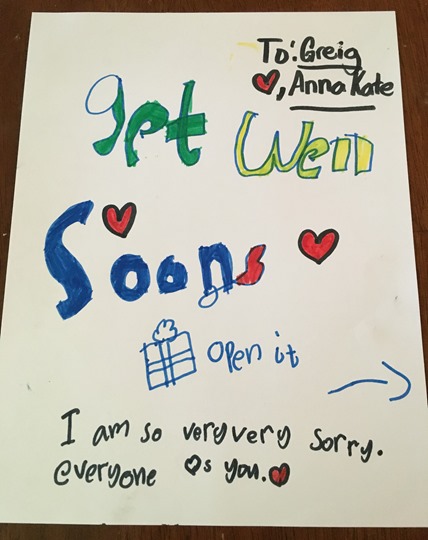 To: Greig
♥, Anna Kate
get Well
Soons
open it
I am so very very sorry.
everyone ♡s you. ♥